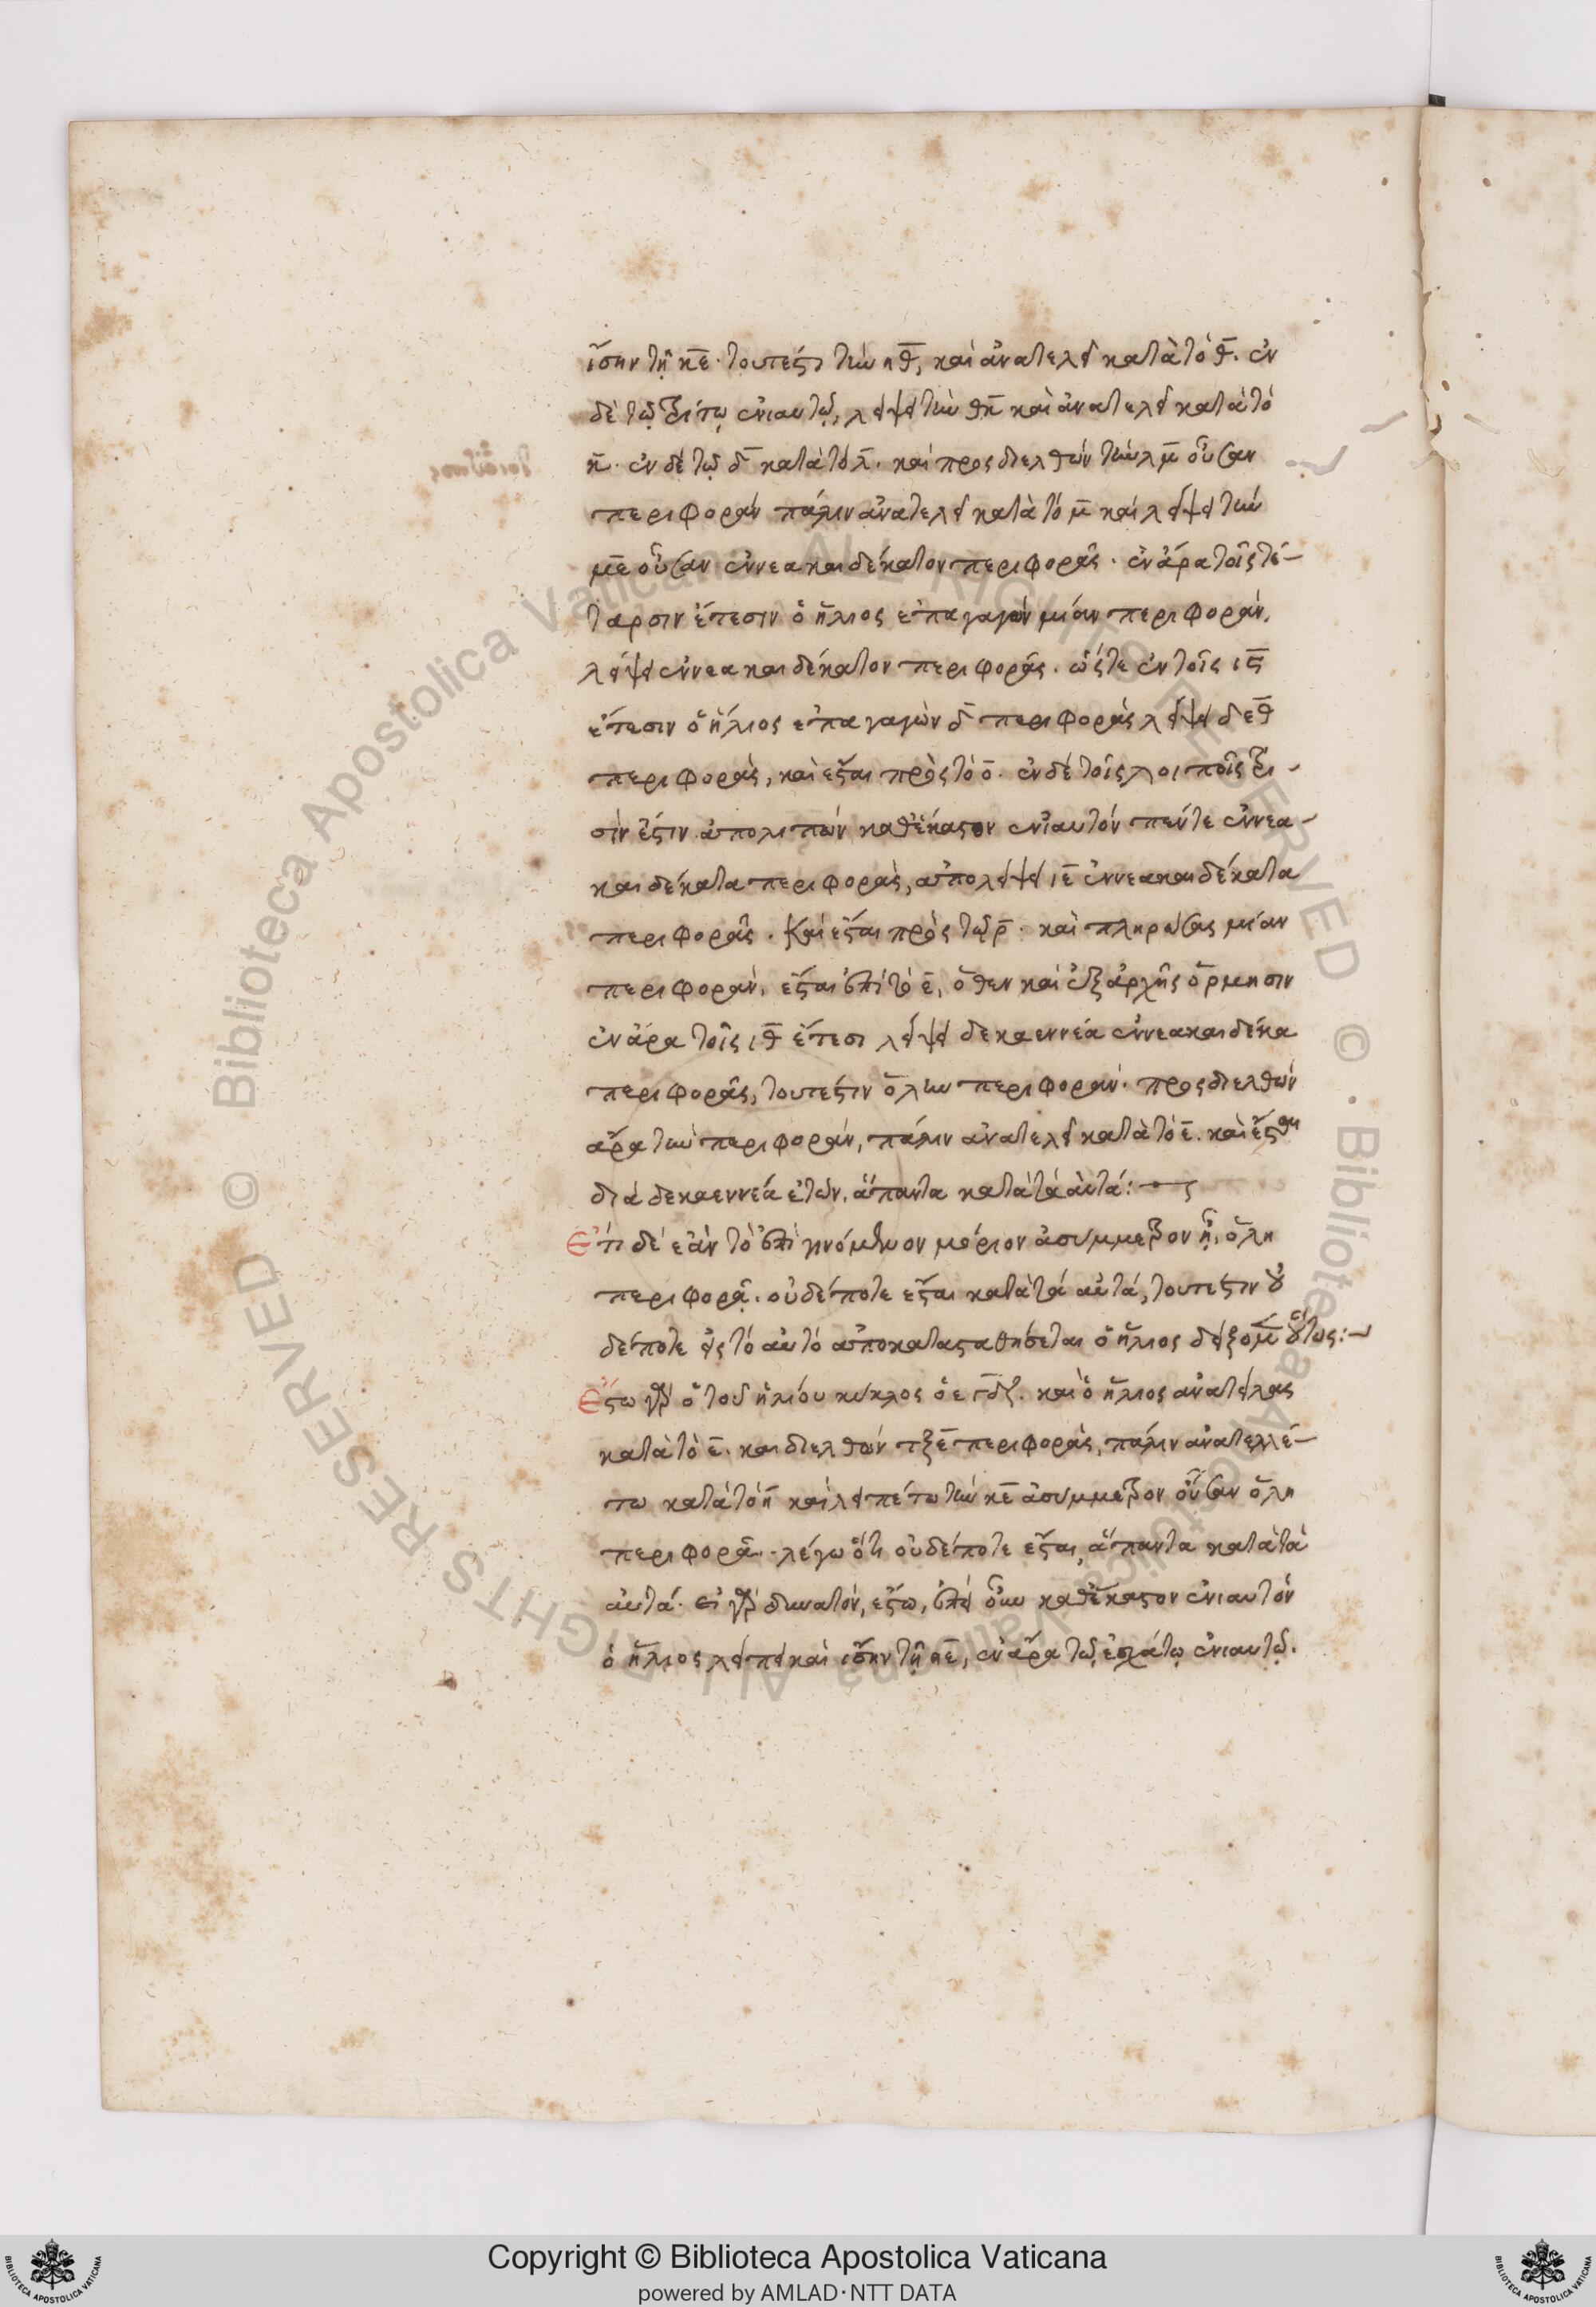 ἴσην τῆ κε· τουτέστι τὴν ηθ, καὶ ἀνατελεῖ κατὰ τὸ θ. ἐν
δὲ τῶ τρίτω ἐνιαυτῶ, λείψει τὴν θκ καὶ ἀνατελεῖ κατὰ τὸ
κ. ἐν δὲ τῶ δ κατὰ τὸ λ. καὶ προσδιελθὼν τὴν λμ οὖσαν
περιφορὰν πάλιν ἀνατελεῖ κατὰ τὸ μ καὶ λείψει τὴν
με οὖσαν ἐννεακαιδέκατον περιφορᾶς. ἐν ἄρα τοῖς τέ-
ταρσιν ἔτεσιν ὁ ἥλιος ἐπαγαγὼν μίαν περιφορὰν,
λείψει ἐννεακαιδέκατον περιφορᾶς. ὥστε ἐν τοῖς ις
ἔτεσιν ὁ ἥλιος ἐπαγαγὼν δ περιφορὰς λείψει δ εθ
περιφορὰς, καὶ ἔσται πρὸς τὸ ο. ἐν δὲ τοῖς λοιποῖς τρι-
σὶν ἔτσιν ἀπολιπὼν καθ' ἕκαστον ἐνιαυτὸν πέντε ἐννεα-
καιδέκατα περιφορὰς, ἀπολείψει ιε ἐννεακαιδέκατα
περιφορᾶς. καὶ ἔσται πρὸς τῶ ρ. καὶ πληρώσας μίαν
περιφορὰν, ἔσται ἐπὶ τὸ ε, ὅθεν καὶ ἐξ ἀρχῆς ὅρμησιν
ἐν ἄρα τοῖς ιθ ἔτεσι λείψει δεκαεννέα ἐννεακαιδέκα
περιφορᾶς, τουτέστιν ὅλην περιφοράν. προσδιελθὼν
ἄρα τὴν περιφορὰν, πάλιν ἀνατελεῖ κατὰ τὸ ε. καὶ ἔσται
διὰ δεκαεννέα ἐτῶν, ἅπαντα κατὰ τὰ αὐτά:—
Ἔτι δὲ ἐὰν τὸ ἐπιγινόμενον μόριον ἀσύμμετρον ἦ, ὅλη
περιφορᾶ. οὐδέποτε ἔσται κατὰ τὰ αὐτά, τουτέστιν οὐ
δέποτε εἰς τὸ αὐτὸ ἀποκατασταθήσεται ὁ ἥλιος δείξομεν οὕτως:—
Ἔστω γὰρ ὁ τοῦ ἡλίου κύκλος ὁ εγδζ. καὶ ὁ ἥλιος ἀνατείλας
κατὰ τὸ ε. καὶ διελθὼν τξε περιφορὰς, πάλιν ἀνατελλέ-
τω κατὰ τὸ η καὶ λειπέτω τὴν κε ἀσύμμετρον οὖσαν ὅλη
περιφορᾶ. λέγω ὅτι οὐδέποτε ἔσται, ἅπαντα κατὰ τὰ
αὐτά. εἰ γὰρ δυνατόν, ἔστω, ἐπεὶ οὖν καθ' ἕκαστον ἐνιαυτὸν
ὁ ἥλιος λείπει καὶ ἴσην τῆ ηε, ἐν ἄρα τῶ ἐσχάτω ἐνιαυτῶ.